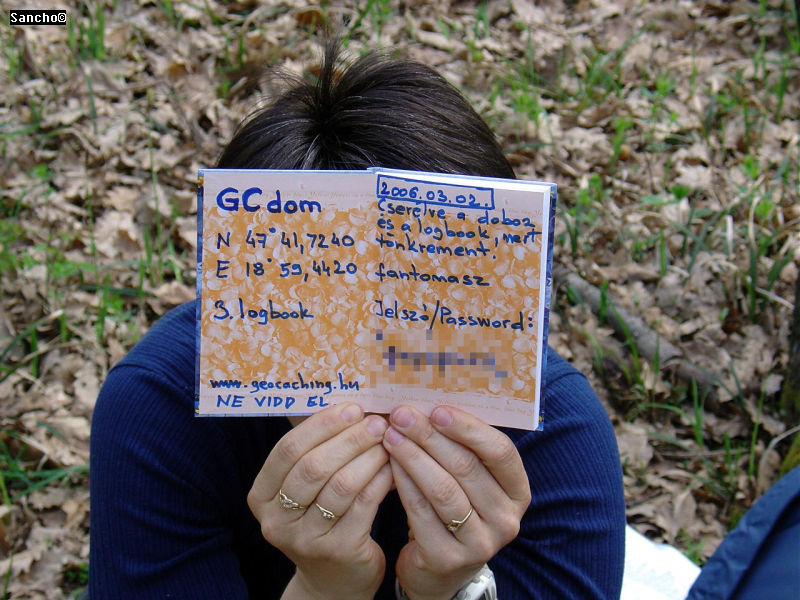 Sancho©
GCdom
N 47°41,7240
E 18°59,4420
3. logbook
www.geocaching.hu
NE VIDD EL.
2006.03.02.
Cserélve a doboz
és a logbook, mert
tönkrement.
fantomasz
Jelszó/Password: